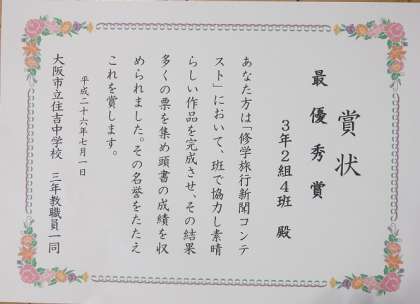 賞状
最優秀賞
3年2組4班 殿
あなた方は「修学旅行新聞コンテ
スト」において、班で協力し素晴
らしい作品を完成させ、その結果
多くの票を集め頭書の成績を収
められました。その名誉をたたえ
これを賞します。
平成二十六年七月一日
大阪市立住吉中学校 三年教職員一同